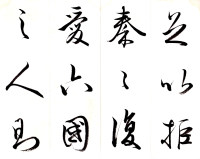 足以拒
秦秦復
愛六國
之人則